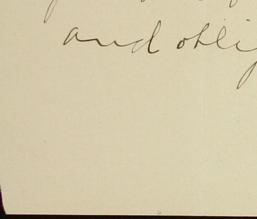 and oblig